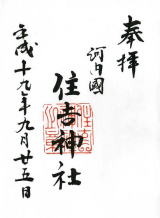 奉拝
河内國
住吉神社
平成十九年九月廿五日